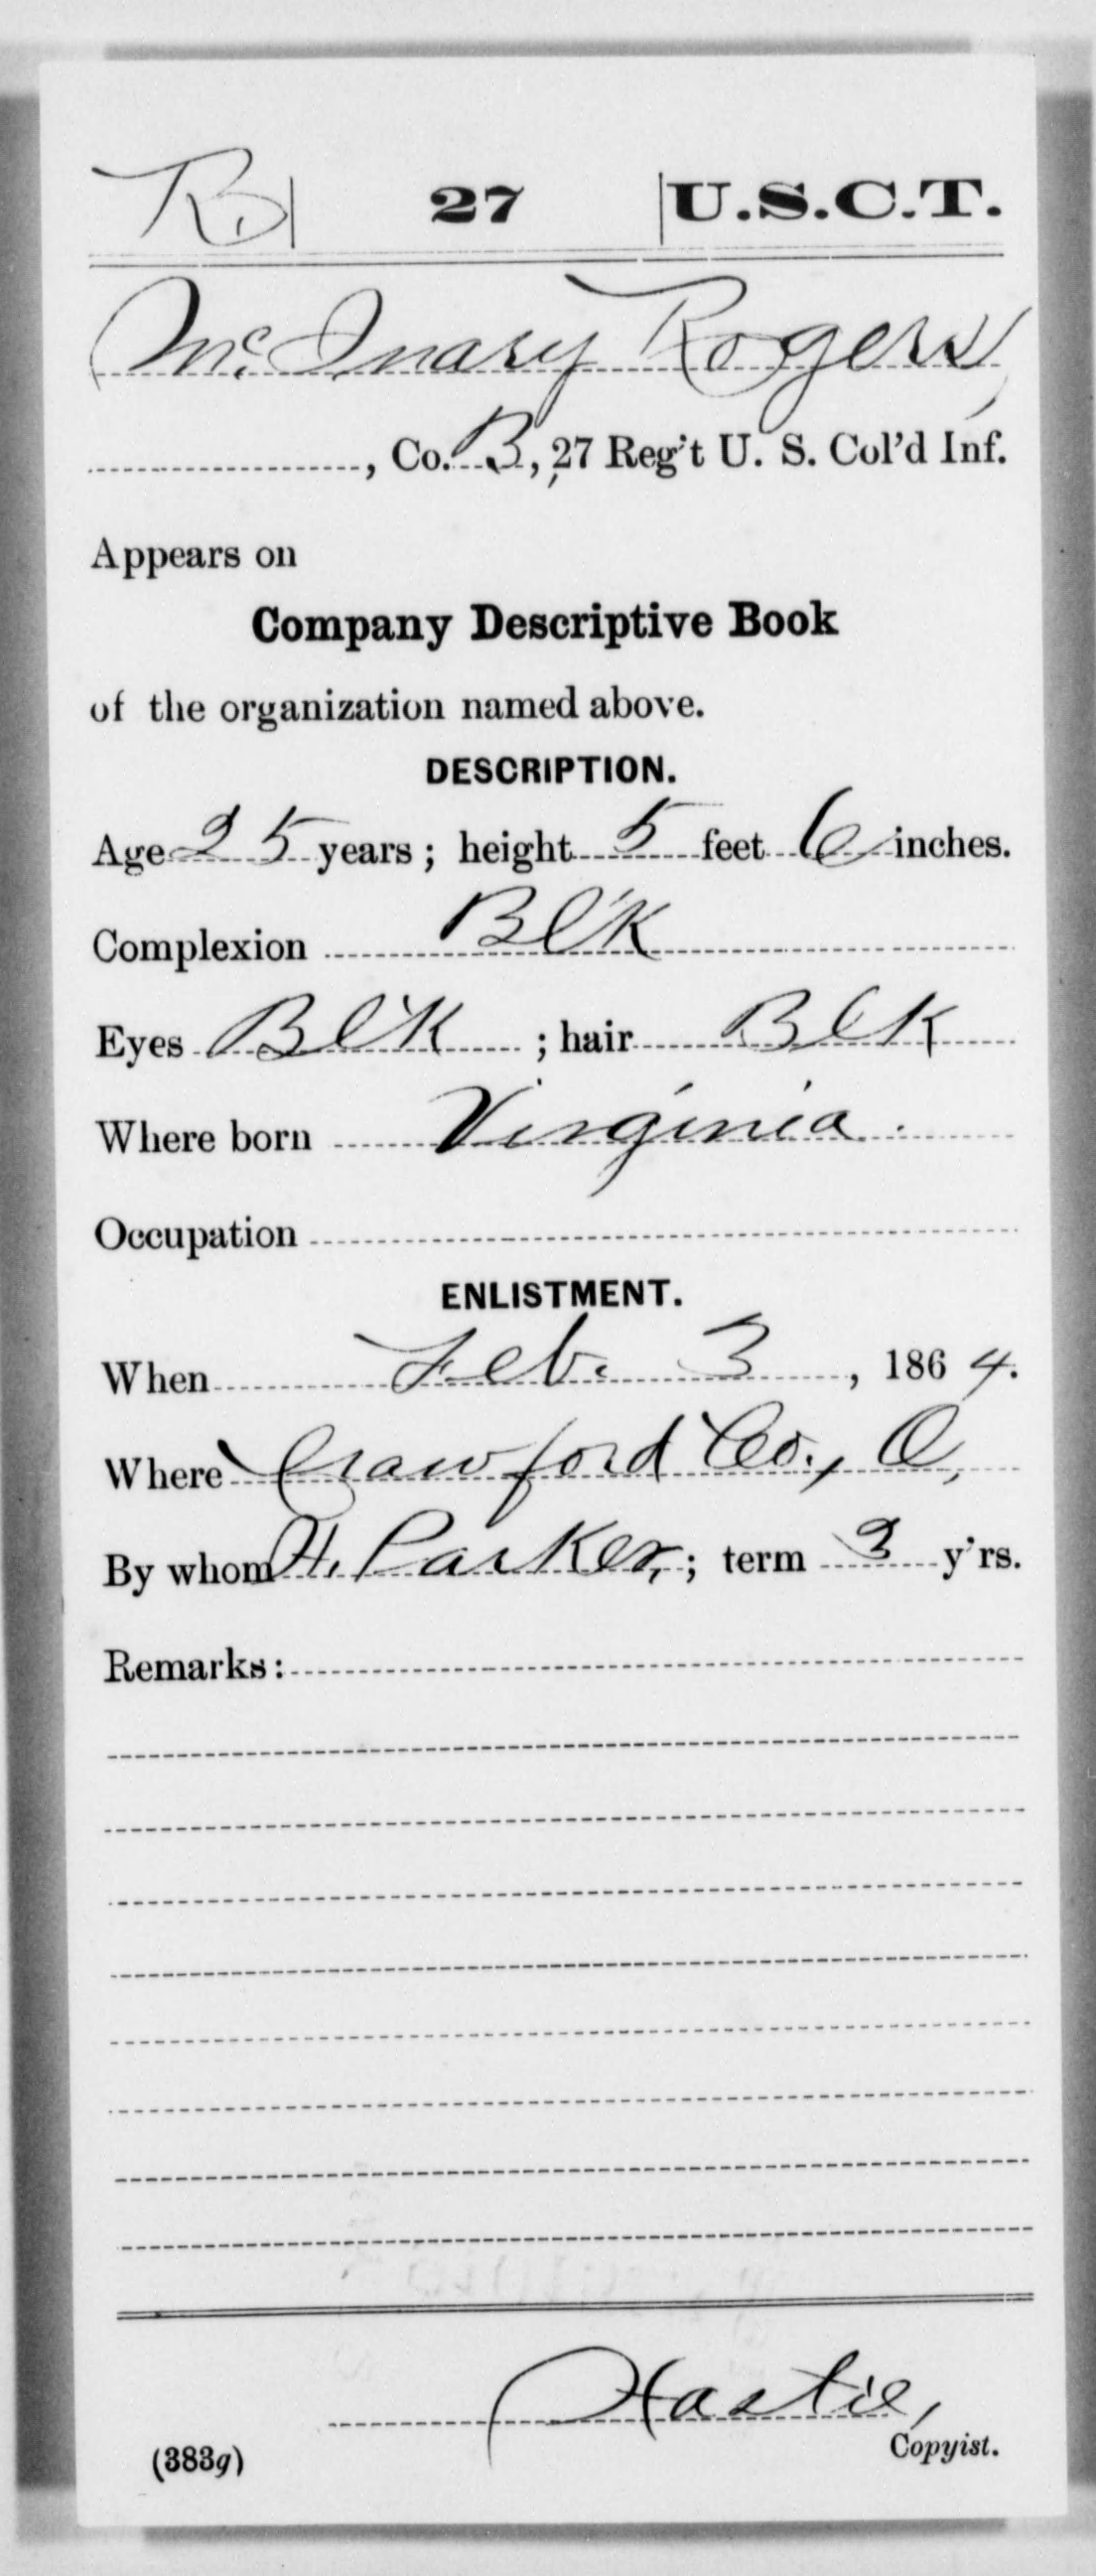 R | 27 | U.S.C.T.
McInary Rogers
, Co. B, 27 Reg't U. S. Col'd Inf.
Appears on
Company Descriptive Book
of the organization named above.
DESCRIPTION.
Age 25 years; height 5 feet 6 inches.
Complexion Bl'k
Eyes Bl'k ; hair Blk
Where born Virginia.
Occupation
ENLISTMENT.
When Feb. 3, 1864.
Where Crawford Co., O,
By whom H. Parker, ; term 3 y'rs.
Remarks:
Hastie,
Copyist.
(383g)